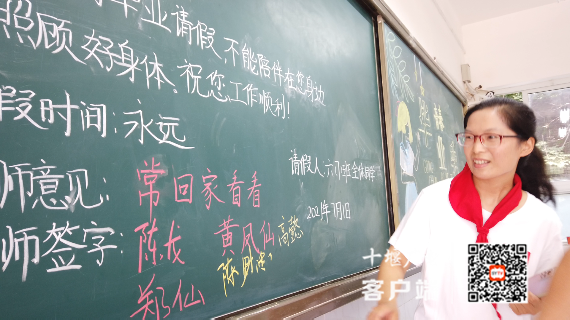 毕业请假,不能陪伴在您身边
照顾好身体、祝您工作顺利!
假时间:永远
师意见:常回家看看
师签字:陈龙 黄凤仙 高懿
郑仙
请假人:六(1)班全体同学
2021年7月1日
十堰
客户端